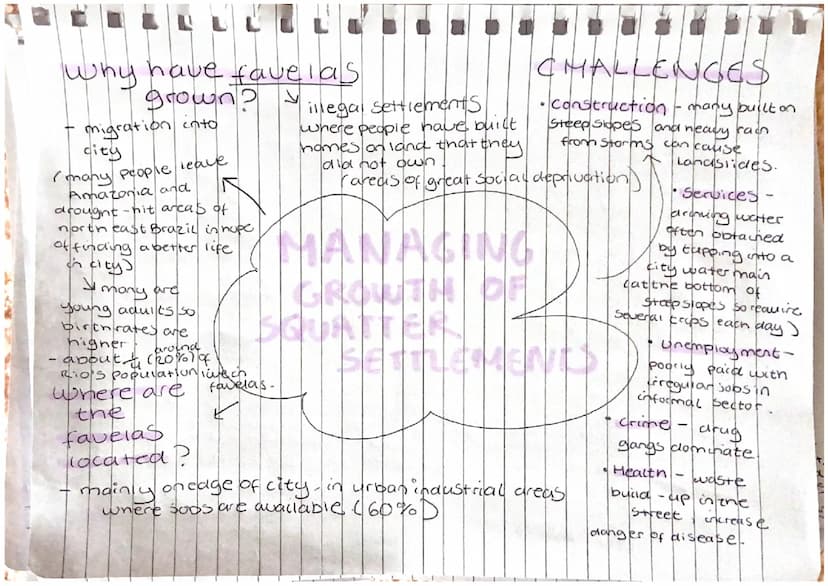 Why have favelas
grown?
- migration into
city
(many people leave
Amazonia and
drought-hit areas of
north east Brazil in hope
of finding a better life
in city)
↳ many are
young adults so
birth rates are
higher.
- about (20%) of
around
Rio's population live in
favelas.
illegal settlements
where people have built
homes on land that they
did not own.
(areas of great social deprivation)
MANAGING
GROWTH OF
SQUATTER
SETTLEMENTS
Where are
the
favelas
located?
- mainly on edge of city - in urban industrial areas
where jobs are available (60%)
CHALLENGES
• Construction - many built on
steep slopes and heavy rain
from storms can cause
landslides.
• Services -
drinking water
often obtained
by tapping into a
city water main
(at the bottom of
steep slopes so require
several trips each day)
• Unemployment -
poorly paid with
irregular jobs in
informal sector.
• Crime - drug
gangs dominate
• Health - waste
build-up in the
street, increase
danger of disease.